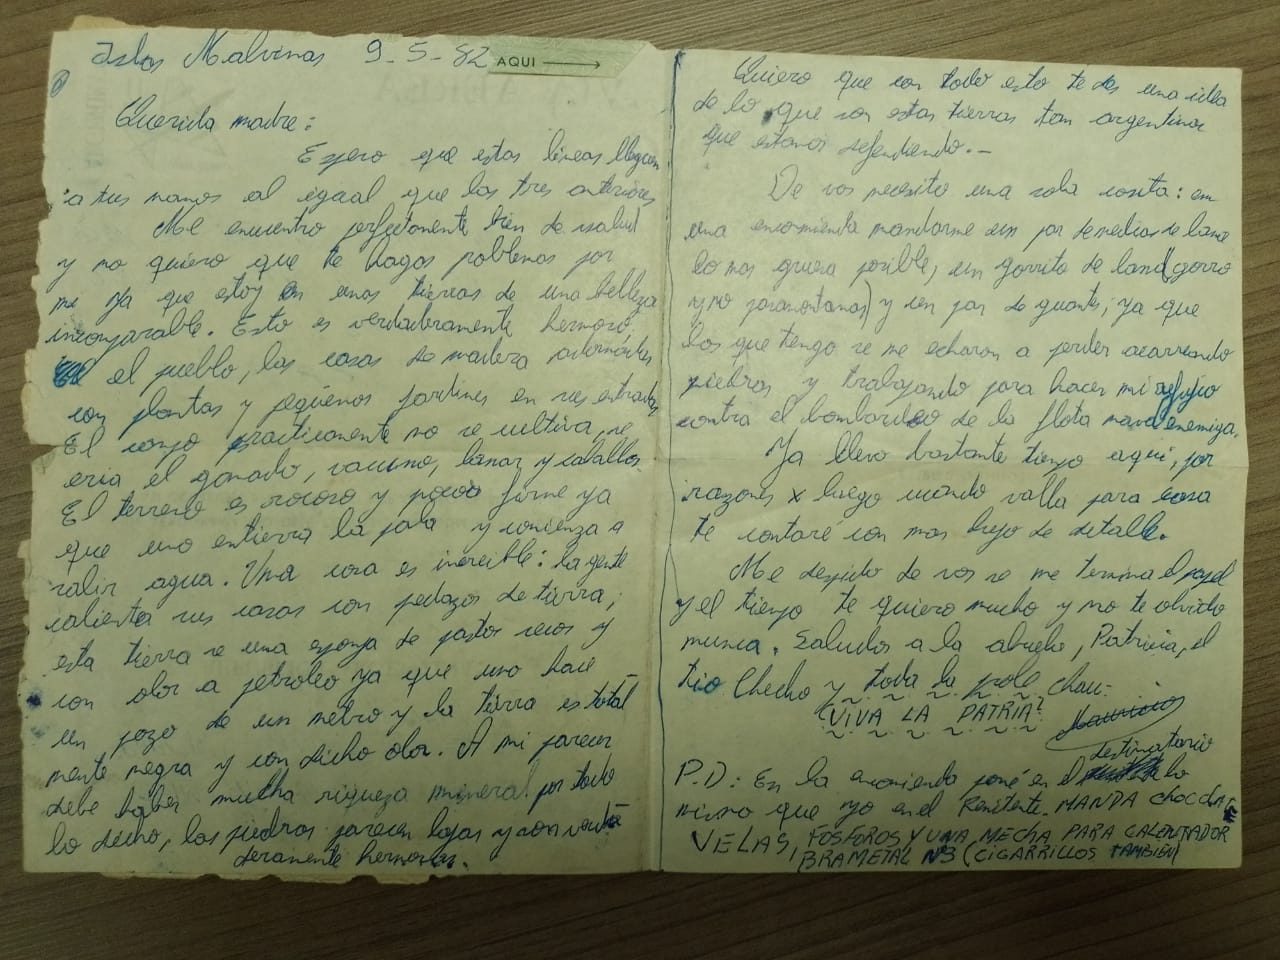 Islas Malvinas 9-5-82 AQUI →
Querida madre:
Espero que estas líneas lleguen
a tus manos al igual que las tres anteriores
Me encuentro perfectamente bien de salud
y no quiero que te hagas poblemas por
me ya que estoy en unas tierras de una belleza
incomparable. Esto es verdaderamente hermoso
el pueblo, las casas de madera adornadas
con plantas y pequeños jardines en sus entradas
El campo practicamente no se cultiva, se
cria el ganado, vacuno, lanar y caballos
El terreno es rocoso y poco firme ya
que uno entierra la pala y comienza a
salir agua. Una cosa es increible: la gente
calienta sus casas con pedazos de tierra;
esta tierra es una esponja de pastos secos y
con olor a petroleo ya que uno hace
un pozo de un metro y la tierra es total
mente negra y con dicho olor. A mi parecer
debe haber mucha riqueza mineral por todo
lo dicho, las piedras parecen lajas y son verda-
deramente hermosas.
Quiero que con todo esto te des una idea
de lo que son estas tierras tan argentinas
que estamos defendiendo.-
De vos necesito una sola cosita: en
una encomienda mandarme un par de medias de lana
lo mas gruesa posible, un gorrito de lana (gorro
y no pasamontañas) y un par de guantes; ya que
los que tengo se me echaron a perder acarreando
piedras y trabajando para hacer mi refugio
contra el bombardeo de la flota naval enemiga.
Ya llevo bastante tiempo aquí, por
razones x luego cuando valla para casa
te contaré con mas lujo de detalle.
Me despido de vos se me termina el papel
y el tiempo te quiero mucho y no te olvido
nunca. Saludos a la abuela, Patricia, el
tio Checho y toda la prole chau:
VIVA LA PATRIA Mauricio
destinatario
P.D: En la encomienda poné en el lo
mismo que yo en el Remitente. MANDA CHOCOLATE
VELAS, FOSFOROS Y UNA MECHA PARA CALENTADOR
BRAMETAL Nº3 (CIGARRILLOS TAMBIEN)